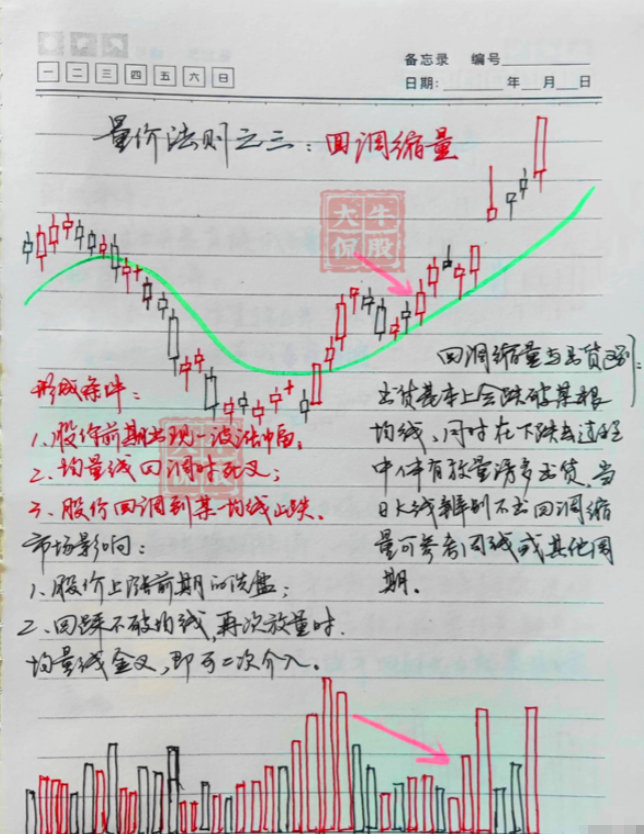 备忘录 编号
一 二 三 四 五 六 日
日期: 年 月 日
量价法则之三：回调缩量
大牛
侃股
回调缩量与出货区别：
形成条件：
出货基本上会跌破某根
1、股价前期出现一波涨幅。
均线、同时在下跌过程
2、均量线回调时死叉；
中伴有放量诱多出货。当
3、股价回调到某一均线止跌。
日K线辨别不出回调缩
市场影响：
量可参考周线或其他周
1、股价上涨前期的洗盘；
期。
2、回踩不破均线，再次放量时.
均量线金叉，即可二次介入。